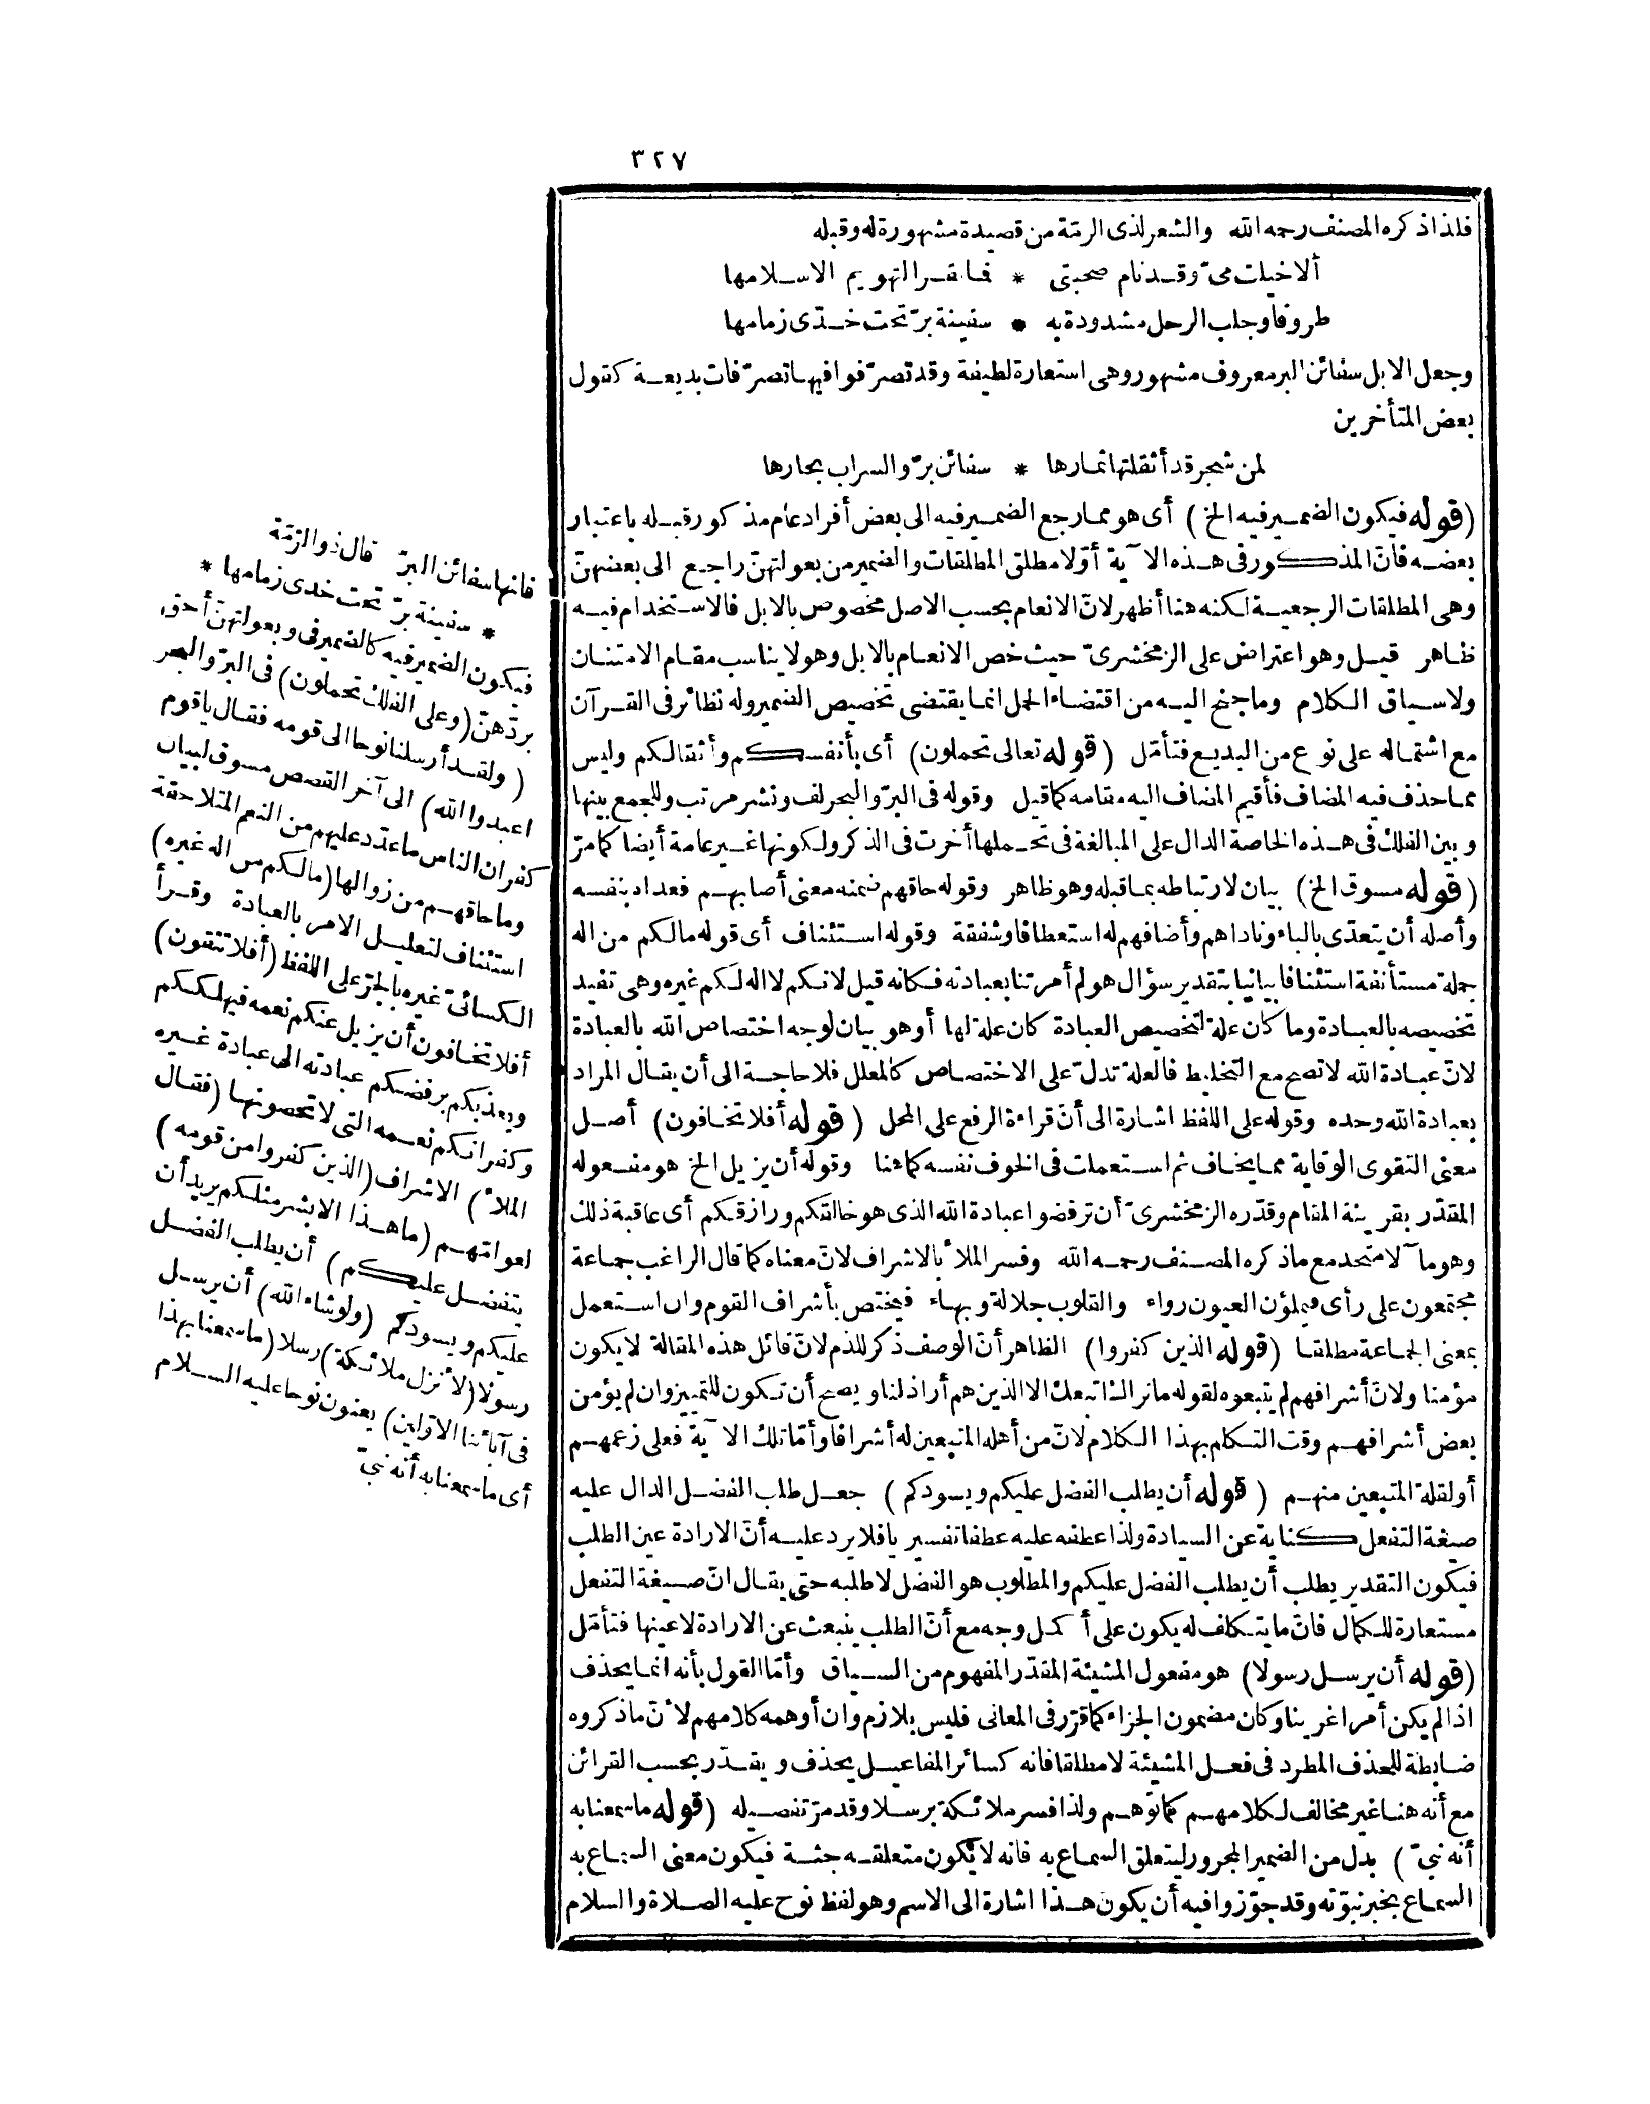 ٣٢٧
فلذا ذكره المصنف رحمه الله والشعر لذى الرمّة من قصيدة مشهورة له وقبله
ألا خيلت مىّ وقد نام صحبتى * فما نفر التهويم الاسلامها
طروقا وجلب الرحل مشدودة به * سفينة برّ تحت خدّى زمامها
وجعل الابل سفائن البر معروف مشهور وهى استعارة لطيفة وقد تصرّفوا فيها تصرّفات بديعة كقول
بعض المتأخرين
لمن شجر قد أثقلتها ثمارها * سفائن برّ والسراب بحارها
(قوله فيكون الضمير فيه الخ) أى هو مما رجع الضمير فيه الى بعض أفراد عام مذكور قبله باعتبار
بعضه فانّ المذكور فى هذه الآية أوّلا مطلق المطلقات والضمير من بعولتهنّ راجع الى بعضهنّ
وهى المطلقات الرجعية لكنه هنا أظهر لانّ الانعام بحسب الاصل مخصوص بالابل فالاستخدام فيه
ظاهر قيل وهو اعتراض على الزمخشرىّ حيث خص الانعام بالابل وهو لا يناسب مقام الامتنان
ولا سياق الكلام وما جنح اليه من اقتضاء الحمل انما يقتضى تخصيص الضمير وله نظائر فى القرآن
مع اشتماله على نوع من البديع فتأمّل (قوله تعالى تحملون) أى بأنفسكم وأثقالكم وليس
مما حذف فيه المضاف فأقيم المضاف اليه مقامه كما قيل وقوله فى البرّ والبحر لف ونشر مرتب وللجمع بينها
وبين الفلك فى هذه الخاصة الدال على المبالغة فى تحملها أخرت فى الذكر ولكونها غير عامة أيضا كما مرّ
(قوله مسوق الخ) بيان لارتباطه بما قبله وهو ظاهر وقوله حاقهم ضمنه معنى أصابهم فعداه بنفسه
وأصله أن يتعدّى بالباء وناداهم وأضافهم له استعطافا وشفقة وقوله استئناف أى قوله مالكم من اله
جملة مستأنفة استئنافا بيانيا بتقدير سؤال هو لم أمرتنا بعبادته فكانه قيل لانكم لا اله لكم غيره وهى تفيد
تخصيصه بالعبادة وما كان علة لتخصيص العبادة كان علة لها أو هو بيان لوجه اختصاص الله بالعبادة
لانّ عبادة الله لا تصح مع التخليط فالعلة تدلّ على الاختصاص كالمعلل فلا حاجة الى أن يقال المراد
بعبادة الله وحده وقوله على اللفظ اشارة الى أنّ قراءة الرفع على المحل (قوله أفلا تخافون) أصل
معنى التقوى الوقاية مما يخاف ثم استعملت فى الخوف نفسه كما هنا وقوله أن يزيل الخ هو مفعوله
المقدّر بقرينة المقام وقدّره الزمخشرىّ أن ترفضوا عبادة الله الذى هو خالقكم ورازقكم أى عاقبة ذلك
وهو مآلا متحد مع ما ذكره المصنف رحمه الله وفسر الملأ بالاشراف لانّ معناه كما قال الراغب جماعة
مجتمعون على رأى فيملؤن العيون رواء والقلوب جلالة وبهاء فيختص بأشراف القوم وان استعمل
بمعنى الجماعة مطلقا (قوله الذين كفروا) الظاهر أنّ الوصف ذكر للذم لانّ قائل هذه المقالة لا يكون
مؤمنا ولانّ أشرافهم لم يتبعوه لقوله ما نراك اتبعك الا الذين هم أراذلنا ويصح أن تكون للتمييز وان لم يؤمن
بعض أشرافهم وقت التكلم بهذا الكلام لانّ من أهله المتبعين له أشرافا وأمّا تلك الآية فعلى زعمهم
أو لقلة المتبعين منهم (قوله أن يطلب الفضل عليكم ويسودكم) جعل طلب الفضل الدال عليه
صيغة التفعل كناية عن السيادة ولذا عطفه عليه عطفا تفسيريا فلا يرد عليه أنّ الارادة عين الطلب
فيكون التقدير يطلب أن يطلب الفضل عليكم والمطلوب هو الفضل لا طلبه حتى يقال انّ صيغة التفعل
مستعارة للكمال فانّ ما يتكلف له يكون على أكمل وجه مع أنّ الطلب ينبعث عن الارادة لا عينها فتأمّل
(قوله أن يرسل رسولا) هو مفعول المشيئة المقدّر المفهوم من السياق وأمّا القول بأنه انما يحذف
اذا لم يكن أمرا غريبا وكان مضمون الجزاء كما قرّر فى المعانى فليس بلازم وان أوهمه كلامهم لأنّ ما ذكروه
ضابطة للحذف المطرد فى فعل المشيئة لا مطلقا فانه كسائر المفاعيل يحذف ويقدّر بحسب القرائن
مع أنه هنا غير مخالف لكلامهم كما توّهم ولذا فسر ملائكة برسلا وقد مرّ تفصيله (قوله ما سمعنا به
أنه نبىّ) بدل من الضمير المجرور ليتعلق السماع به فانه لا يكون متعلقه جثة فيكون معنى السماع به
السماع بخبر نبوّته وقد جوّزوا فيه أن يكون هذا اشارة الى الاسم وهو لفظ نوح عليه الصلاة والسلام
فانها سفائن البرّ قال ذو الرّمّة
* سفينة برّ تحت خدى زمامها *
فيكون الضمير فيه كالضمير فى وبعولتهنّ أحق
بردّهنّ (وعلى الفلك تحملون) فى البرّ والبحر
(ولقد أرسلنا نوحا الى قومه فقال ياقوم
اعبدوا الله) الى آخر القصص مسوق لبيان
كفران الناس ما عدّد عليهم من النعم المتلاحقة
وما حاقهم من زوالها (مالكم من اله غيره)
استئناف لتعليل الامر بالعبادة وقرأ
الكسائىّ غيره بالجرّ على اللفظ (أفلا تتقون)
أفلا تخافون أن يزيل عنكم نعمه فيهلككم
ويعذبكم برفضكم عبادته الى عبادة غيره
وكفرانكم نعمه التى لا تحصونها (فقال
الملأ) الاشراف (الذين كفروا من قومه)
لعوامّهم (ما هذا الا بشر مثلكم يريد أن
يتفضل عليكم) أن يطلب الفضل
عليكم ويسودكم (ولو شاء الله) أن يرسل
رسولا (لأنزل ملائكة) رسلا (ما سمعنا بهذا
فى آبائنا الاوّلين) يعنون نوحا عليه السلام
أى ما سمعنا به أنه نبىّ